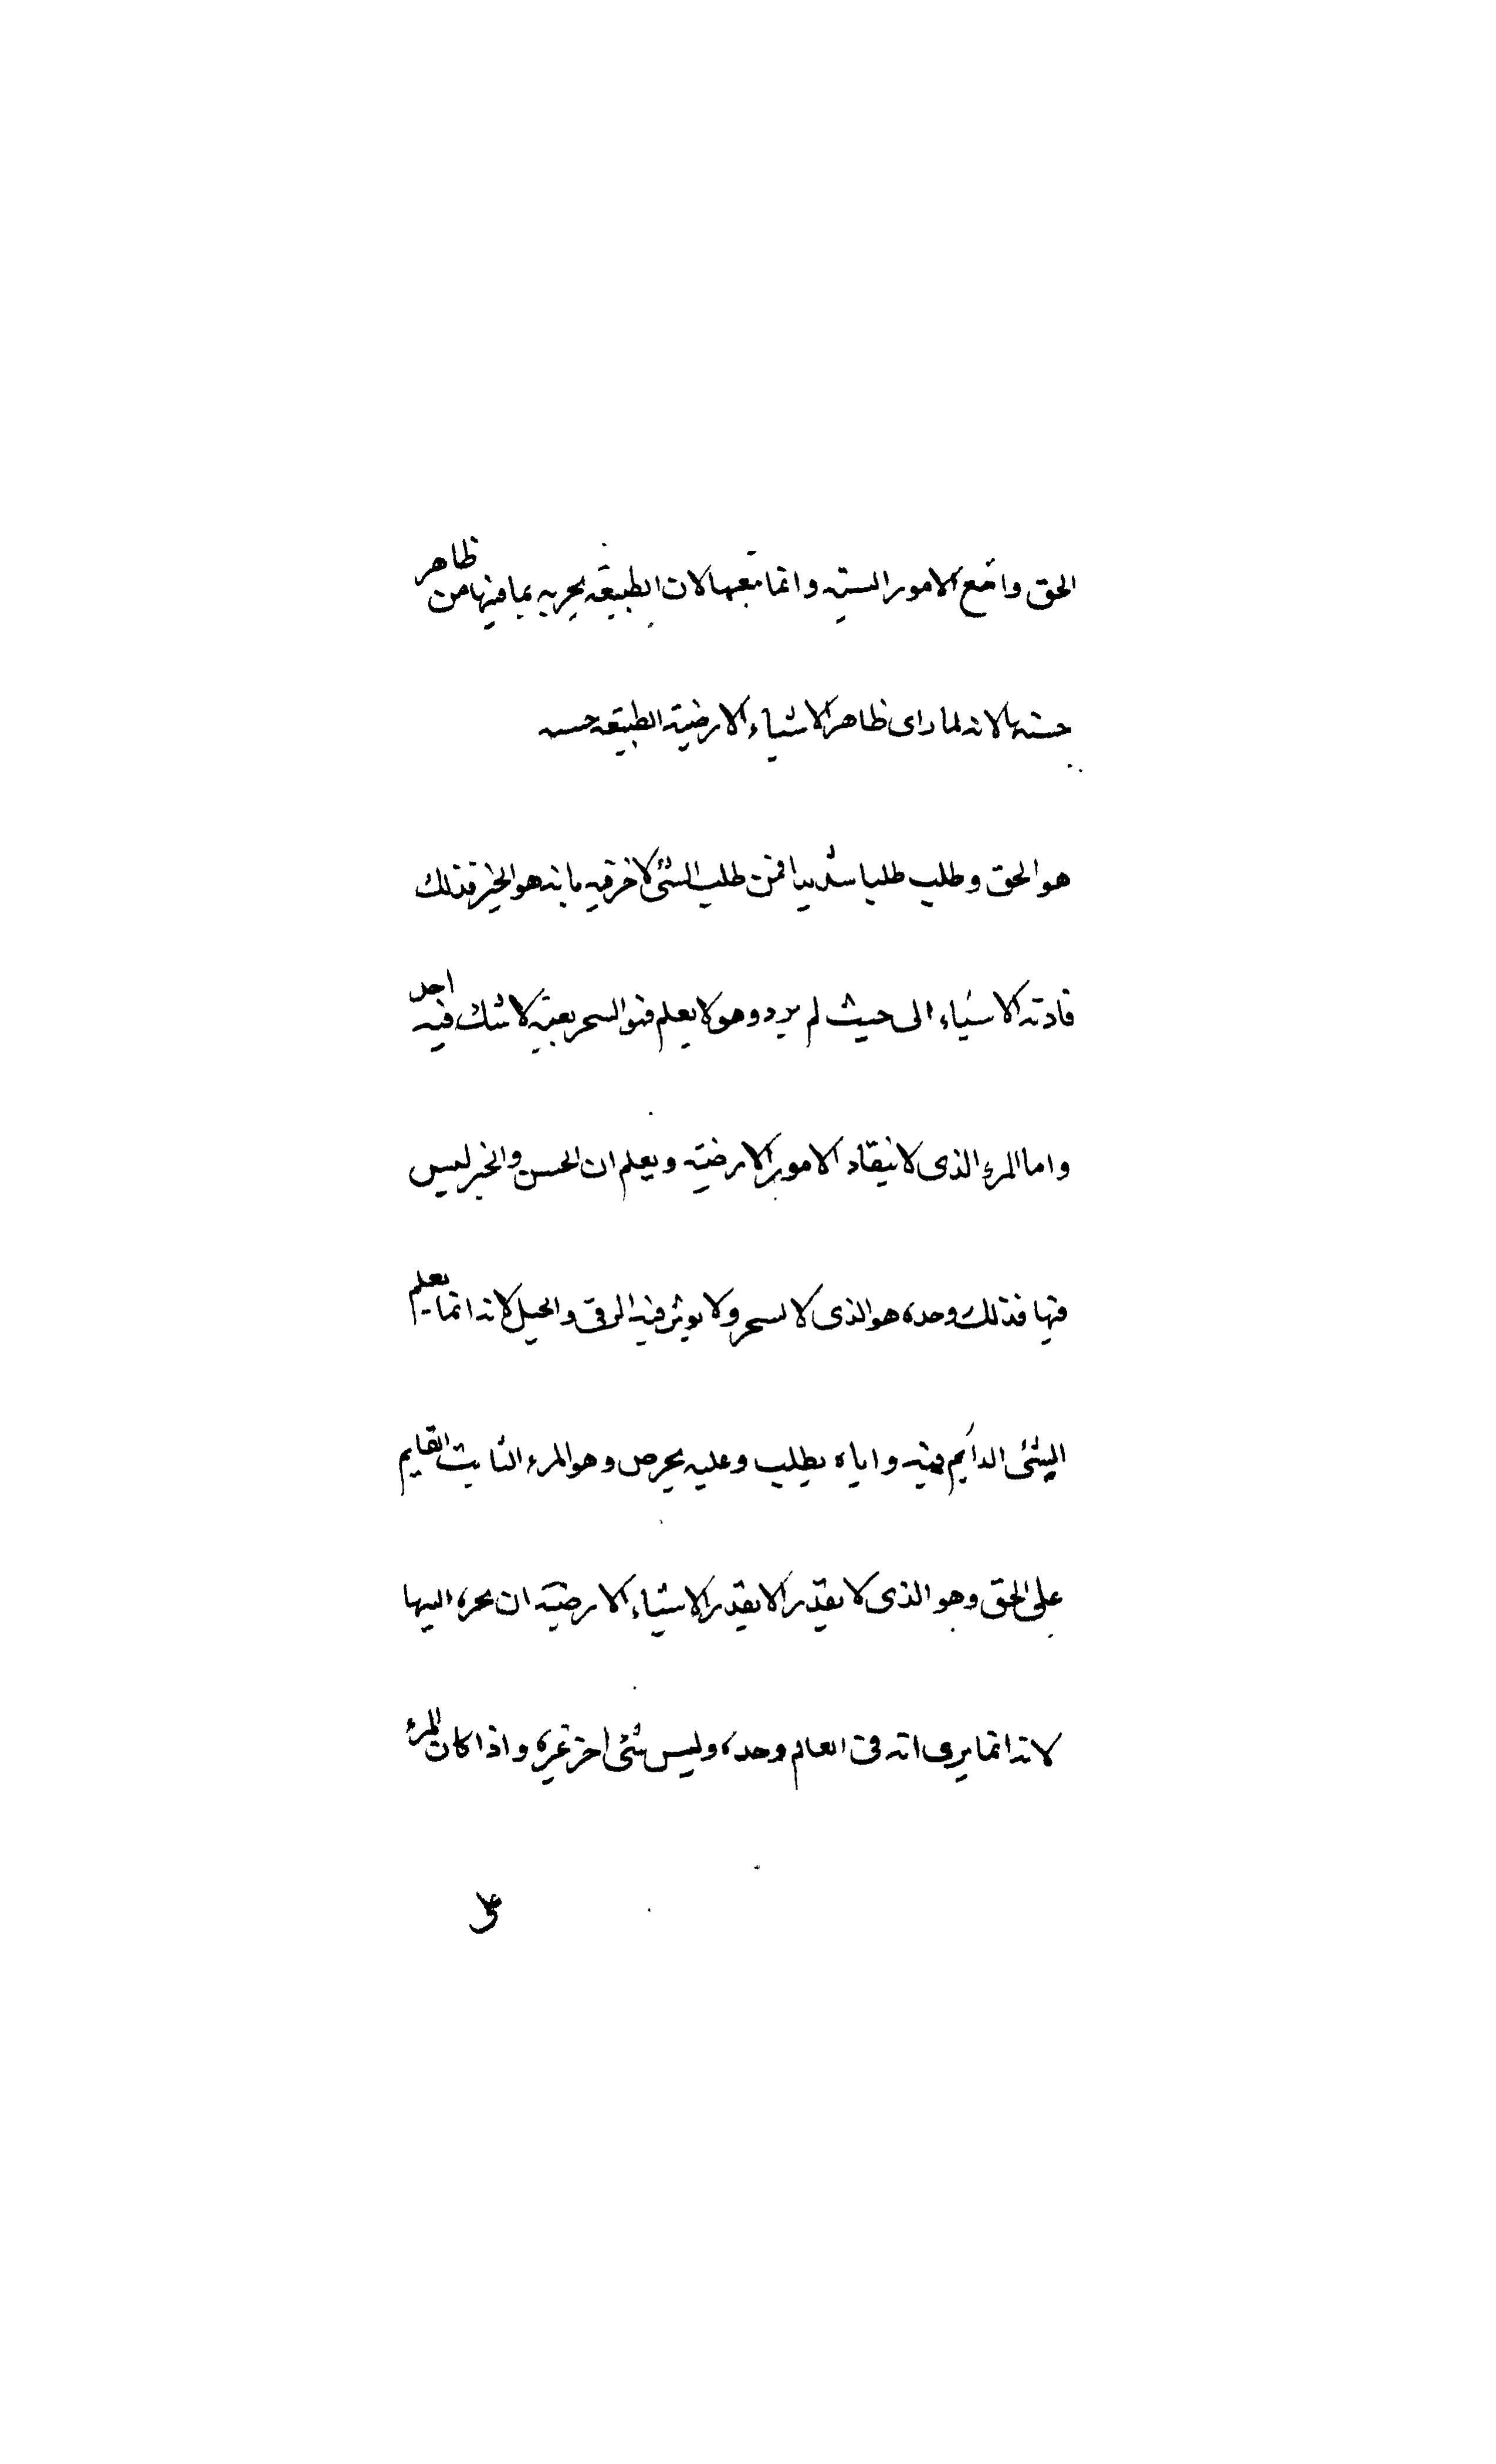 الحق واتبع الامور السيئه وانما تبعها لان الطبيعه تجربه بما فيها من ظاهر
حسنها لانه لما رای ظاهر الاشياء الارضية الطبيعه حسه
هو الحق وطلب طلبا شديدا فمن طلب الشئ لاخر فيه بانه هو الخير فذلك
قادته الاشياء الى حيث لم يرد وهو لا يعلم فهو السحر بعينه لا شك فيه احد
واما المرء الذى لا ينقاد الامور الارضية ويعلم ان الحسن والخير ليس
فيها فذلك وحده هو الذى لا يسحر ولا يوثر فيه الرقى والحيل لانه انما يعلم
الشئ الدايم فيه واياه يطلب وعليه يحرص وهو المرء الثابت القايم
على الحق وهو الذى لا يقدر الا يقدر الاشياء الارضية ان تجره اليها
لانه انما يرى انه فى العالم وحده وليس شئ اخر غيره واذا كان المرء